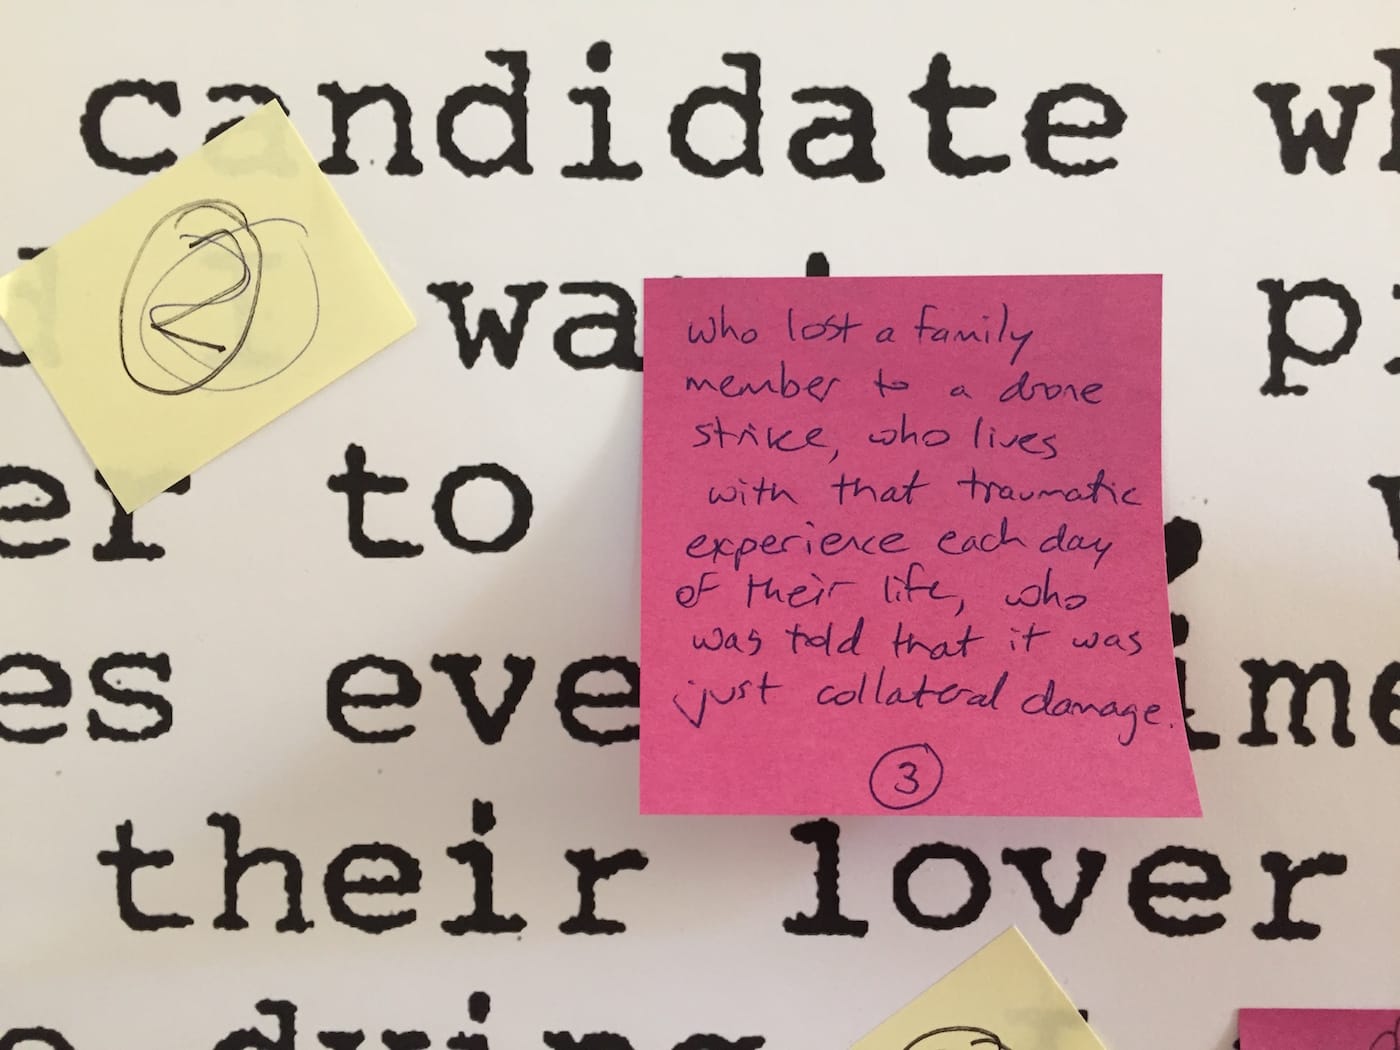 candidate
2
wa
to
eve
their lover
dying
who lost a family
member to a drone
strike, who lives
with that traumatic
experience each day
of their life, who
was told that it was
just collateral damage.
3